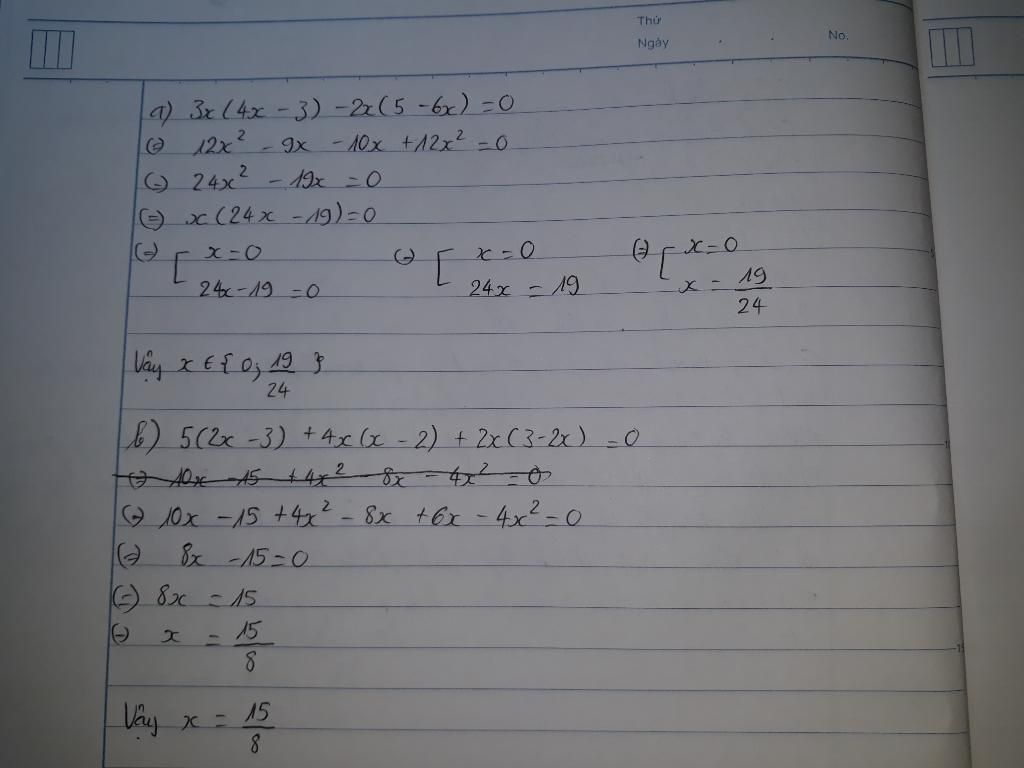 Thứ
Ngày . . No.
a) 3x(4x - 3) - 2x(5 - 6x) = 0
(=) 12x² - 9x - 10x + 12x² = 0
(=) 24x² - 19x = 0
(=) x(24x - 19) = 0
(=) [ x = 0 (=) [ x = 0 (=) [ x = 0
24x - 19 = 0 24x = 19 x = 19/24
Vậy x ∈ { 0; 19/24 }
b) 5(2x - 3) + 4x(x - 2) + 2x(3 - 2x) = 0
(=) 10x - 15 + 4x² 8x - 4x² = 0
(=) 10x - 15 + 4x² - 8x + 6x - 4x² = 0
(=) 8x - 15 = 0
(=) 8x = 15
(=) x = 15/8
Vậy x = 15/8